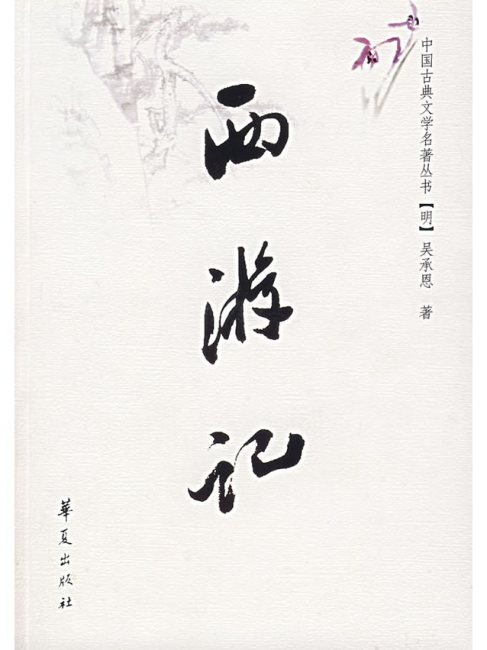 中国古典文学名著丛书【明】吴承恩 著
西游记
華夏出版社